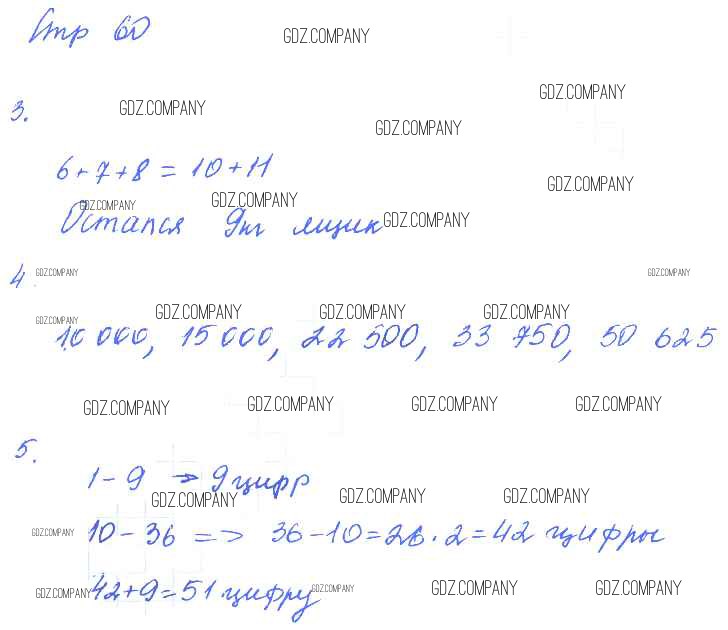 Стр 60
GDZ.COMPANY
GDZ.COMPANY
3.
GDZ.COMPANY
GDZ.COMPANY
6+7+8=10+11
GDZ.COMPANY
GDZ.COMPANY GDZ.COMPANY
Остался 9кг ящик GDZ.COMPANY
4. GDZ.COMPANY GDZ.COMPANY
GDZ.COMPANY GDZ.COMPANY GDZ.COMPANY GDZ.COMPANY
10 000, 15 000, 22 500, 33 750, 50 625
GDZ.COMPANY GDZ.COMPANY GDZ.COMPANY GDZ.COMPANY
5.
1-9 → 9 цифр
GDZ.COMPANY GDZ.COMPANY GDZ.COMPANY
GDZ.COMPANY 10-36 => 36-10=26·2=42 цифры
GDZ.COMPANY 42+9=51 цифру GDZ.COMPANY GDZ.COMPANY GDZ.COMPANY